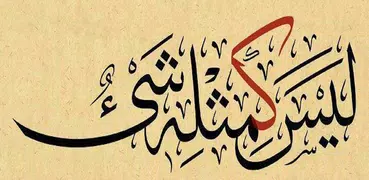 ليس كمثله شيء